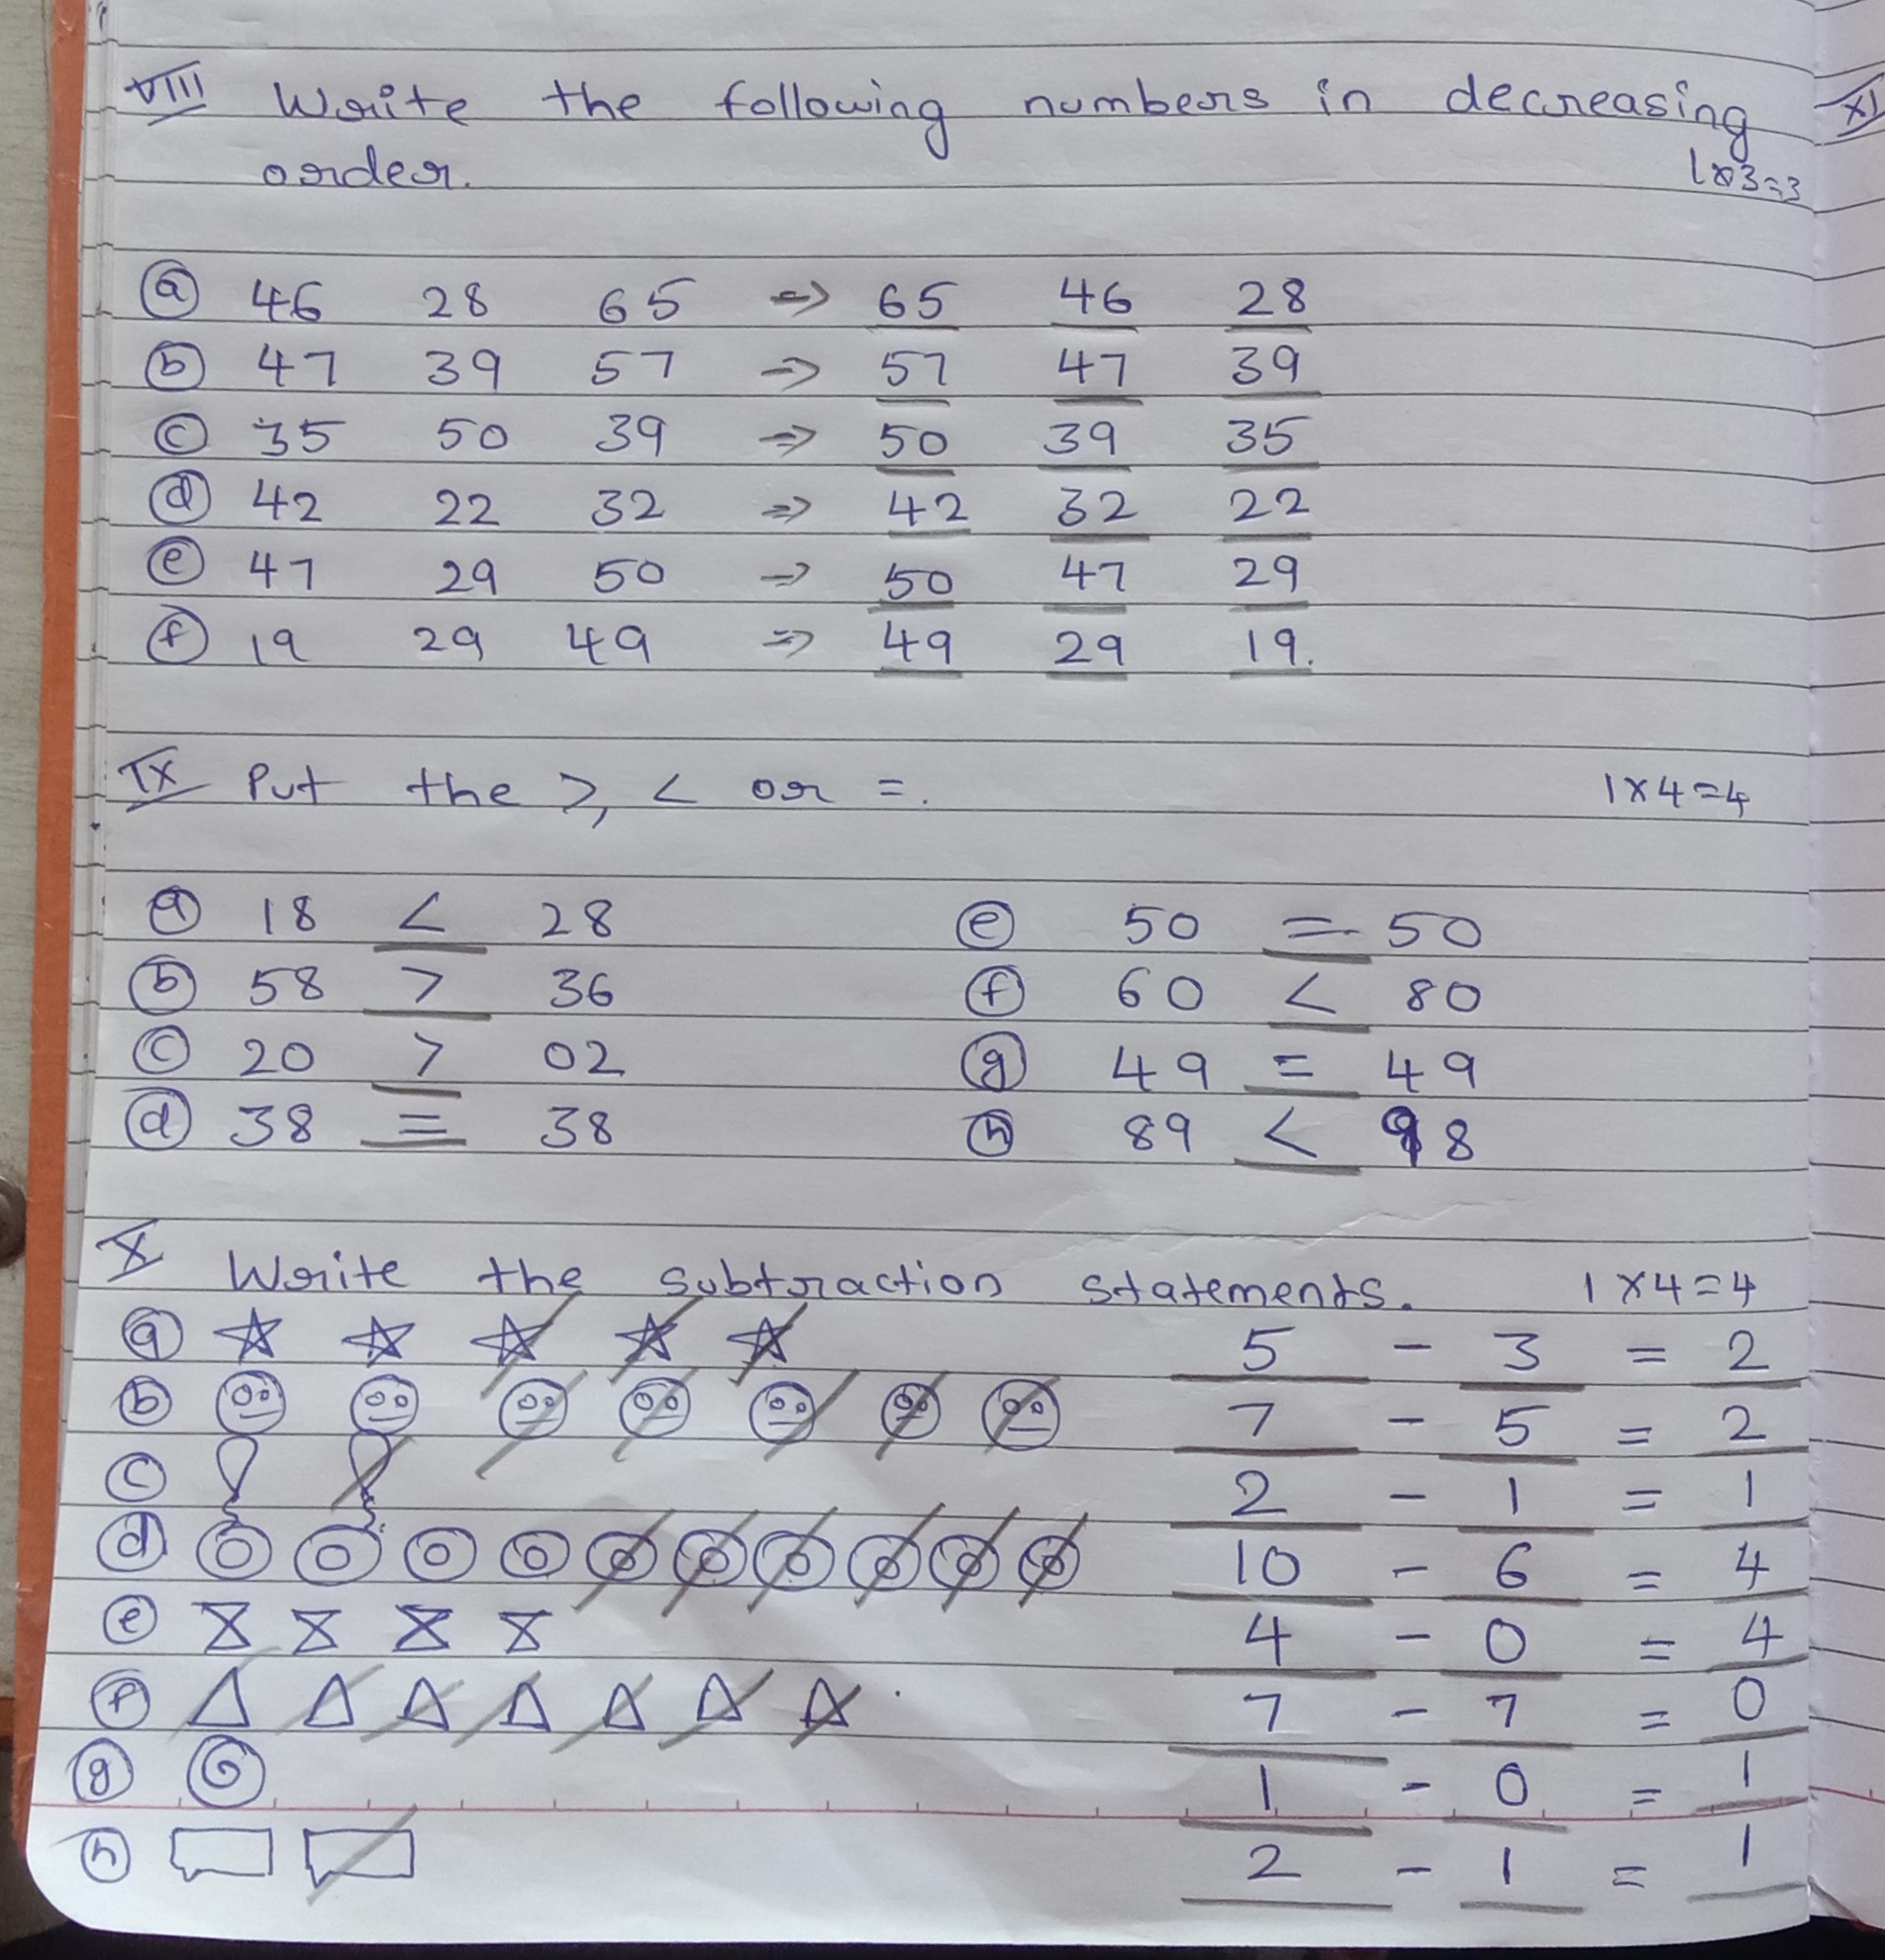 VIII Write the following numbers in decreasing
order. 1x3=3
(a) 46 28 65 => 65 46 28
(b) 47 39 57 => 57 47 39
(c) 35 50 39 => 50 39 35
(d) 42 22 32 => 42 32 22
(e) 47 29 50 => 50 47 29
(f) 19 29 49 => 49 29 19.
IX Put the >, < or =. 1x4=4
(a) 18 < 28 (e) 50 = 50
(b) 58 > 36 (f) 60 < 80
(c) 20 > 02 (g) 49 = 49
(d) 38 = 38 (h) 89 < 98
X Write the subtraction statements. 1x4=4
(a) 5 - 3 = 2
(b) 7 - 5 = 2
(c) 2 - 1 = 1
(d) 10 - 6 = 4
(e) 4 - 0 = 4
(f) 7 - 7 = 0
(g) 1 - 0 = 1
(h) 2 - 1 = 1
XI